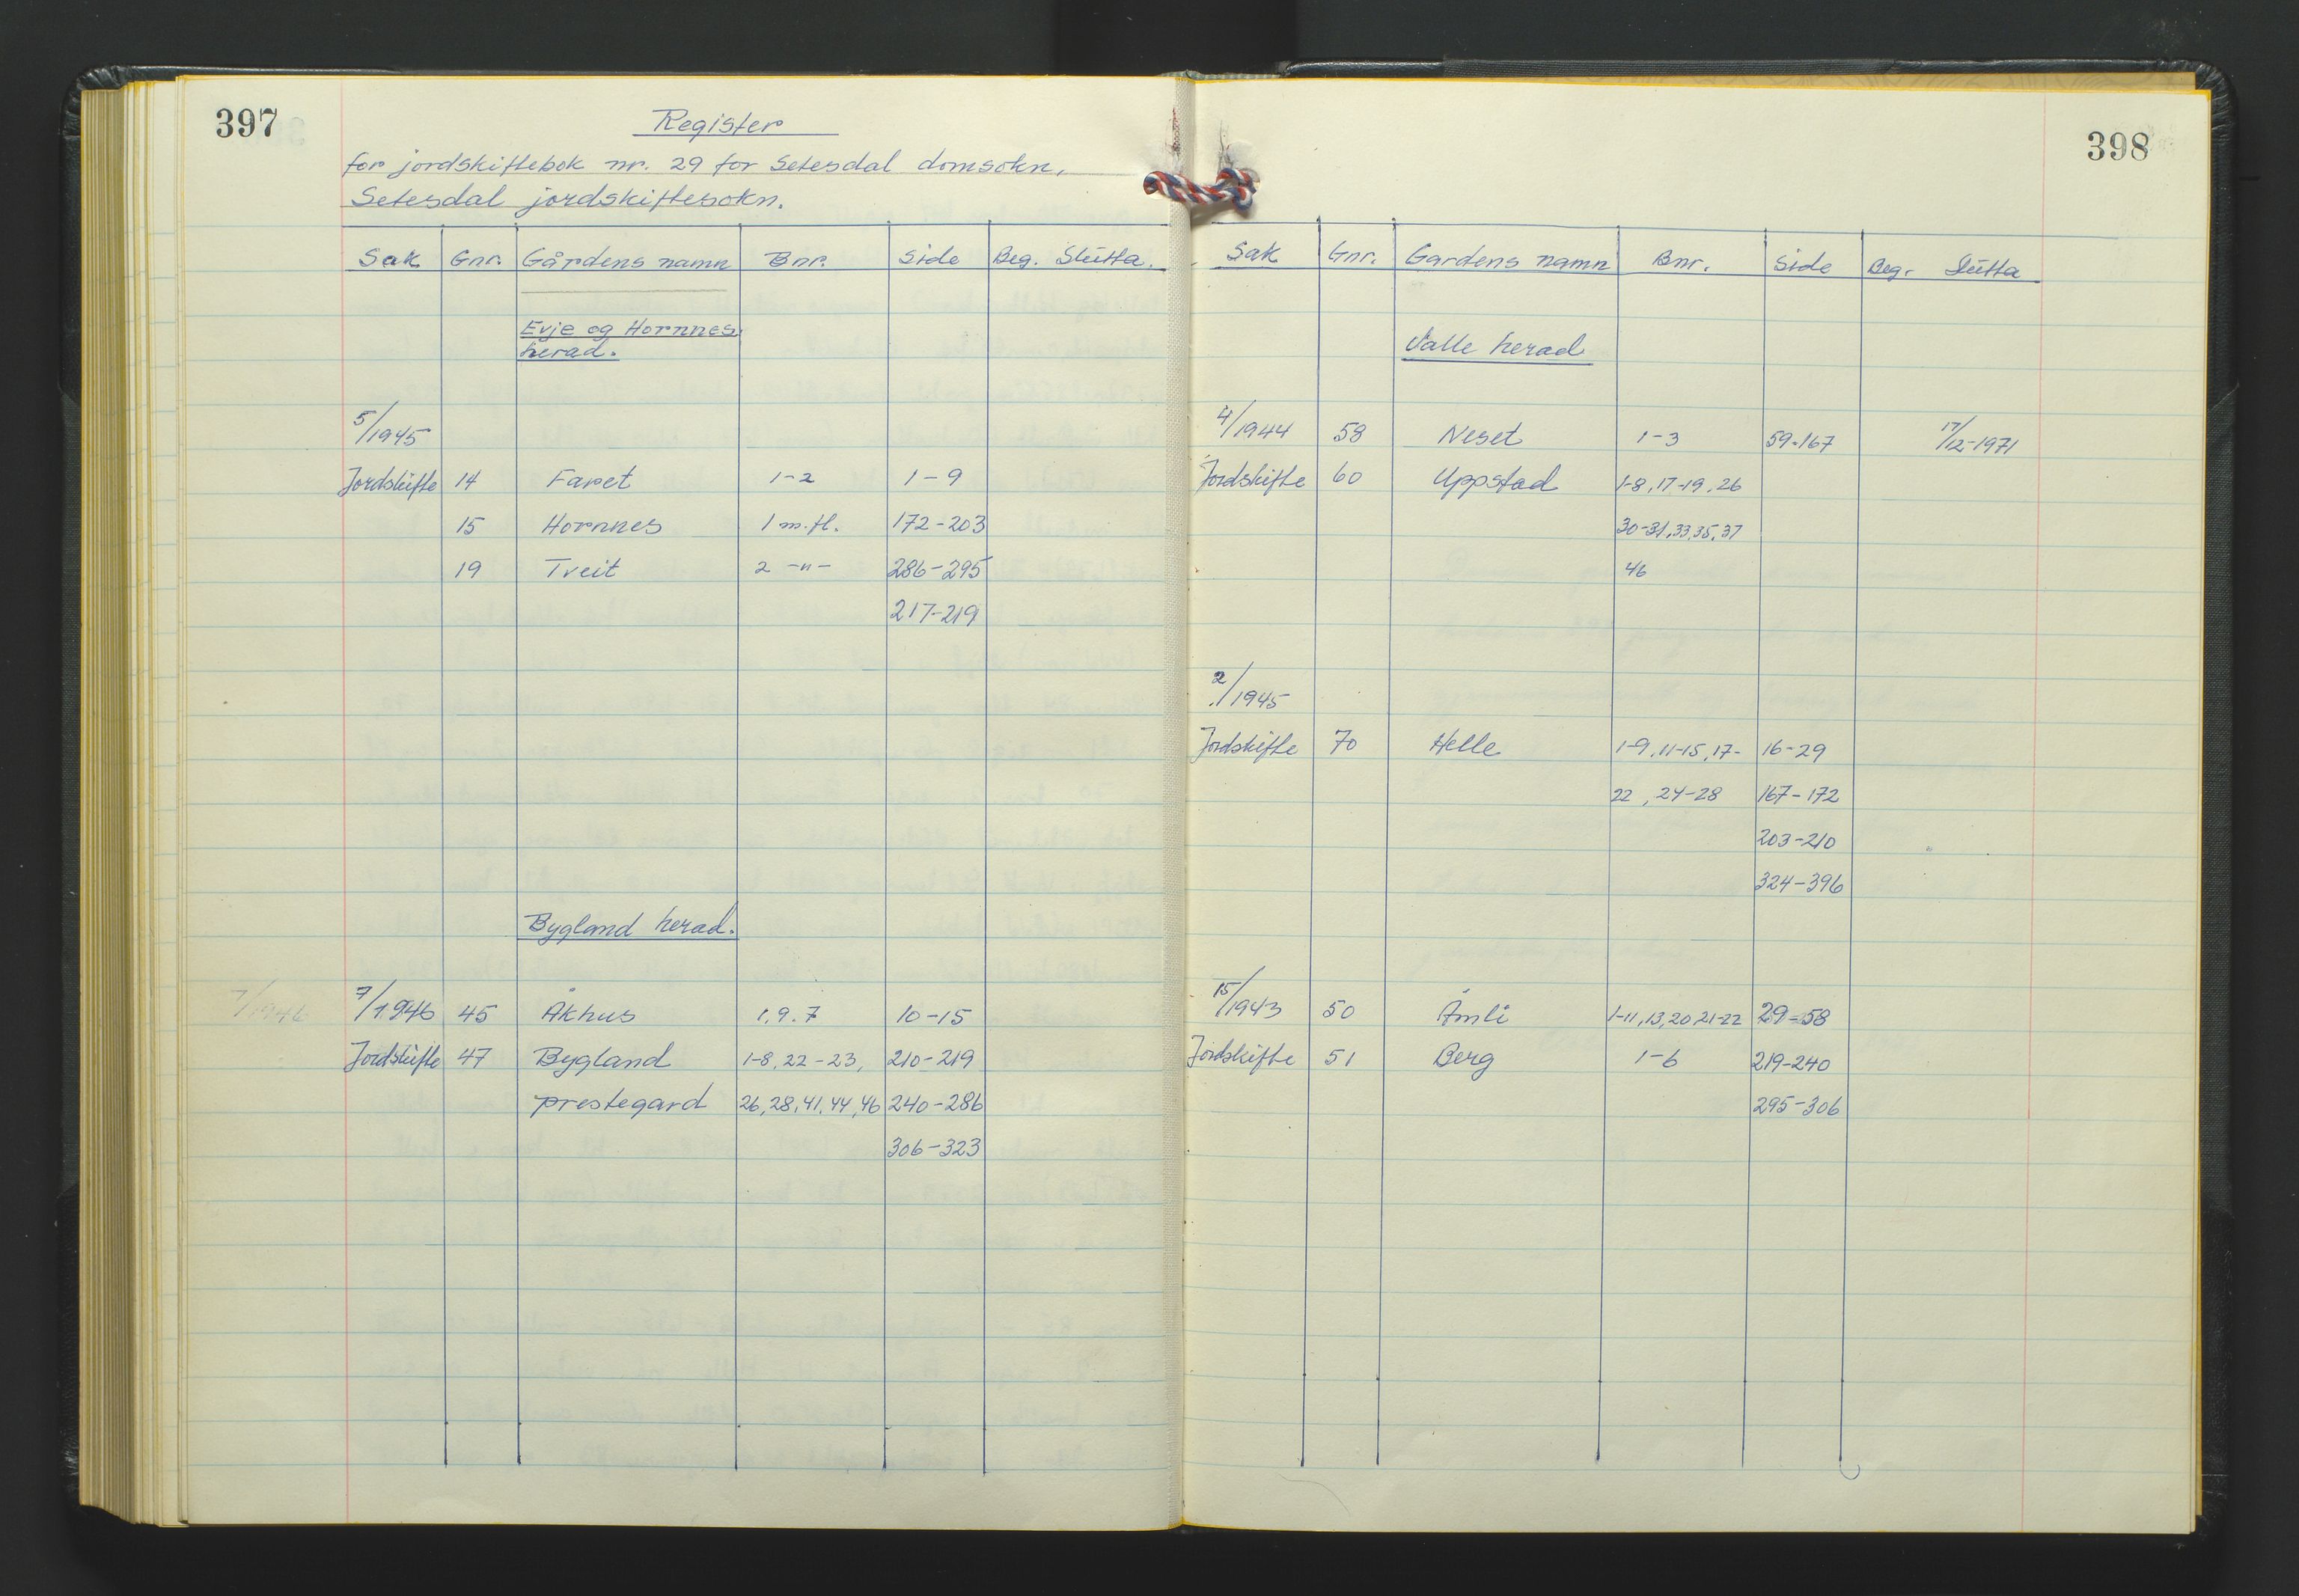 397
Register
for jordskiftebok nr. 29 for Setesdal domsokn,
Setesdal jordskiftesokn.
Sak Gnr. Gårdens namn Bnr. Side Beg. Slutta.
Evje og Hornnes
herad.
5/1945
Jordskifte 14 Faret 1-2 1-9
15 Hornnes 1 m.fl. 172-203
19 Tveit 2 -"- 286-295
217-219
Bygland herad.
7/1946 7/1946 45 Åkhus 1, 9. 7 10-15
Jordskifte 47 Bygland 1-8, 22-23, 210-219
prestegard 26, 28, 41, 44, 46 240-286
306-323
398
Sak Gnr. Gardens namn Bnr. Side Beg. Slutta
Valle herad
4/1944 58 Neset 1-3 59-167 17/12-1971
Jordskifte 60 Uppstad 1-8, 17-19, 26
30-31, 33, 35, 37
46
2/1945
Jordskifte 70 Helle 1-9, 11-15, 17- 16-29
22, 24-28 167-172
203-210
324-396
15/1943 50 Åmli 1-11, 13, 20 21-22 29-58
Jordskifte 51 Berg 1-6 219-240
295-306